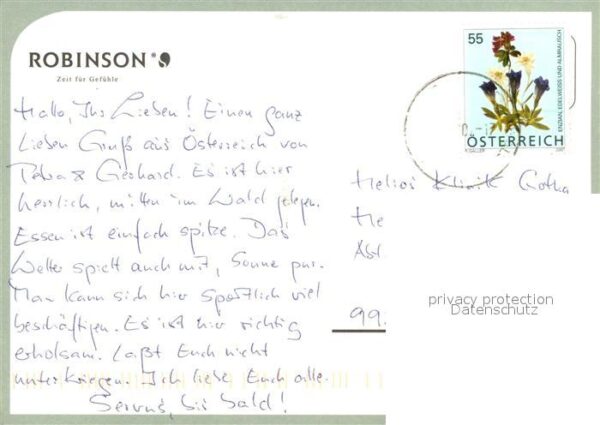 ROBINSON
Zeit für Gefühle
Hallo, Ihr Lieben! Einen ganz
lieben Gruß aus Österreich von
Petra & Gerhard. Es ist hier
herrlich, mitten im Wald gelegen.
Essen ist einfach spitze. Das
Wetter spielt auch mit, Sonne pur.
Man kann sich hier sportlich viel
beschäftigen. Es ist hier richtig
erholsam. Laßt Euch nicht
unterkriegen. Ich liebe Euch alle.
Servus, bis bald!
55
ENZIAN, EDELWEISS UND ALMRAUSCH
ÖSTERREICH
Helios Klinik Gotha
He
99.
privacy protection
Datenschutz